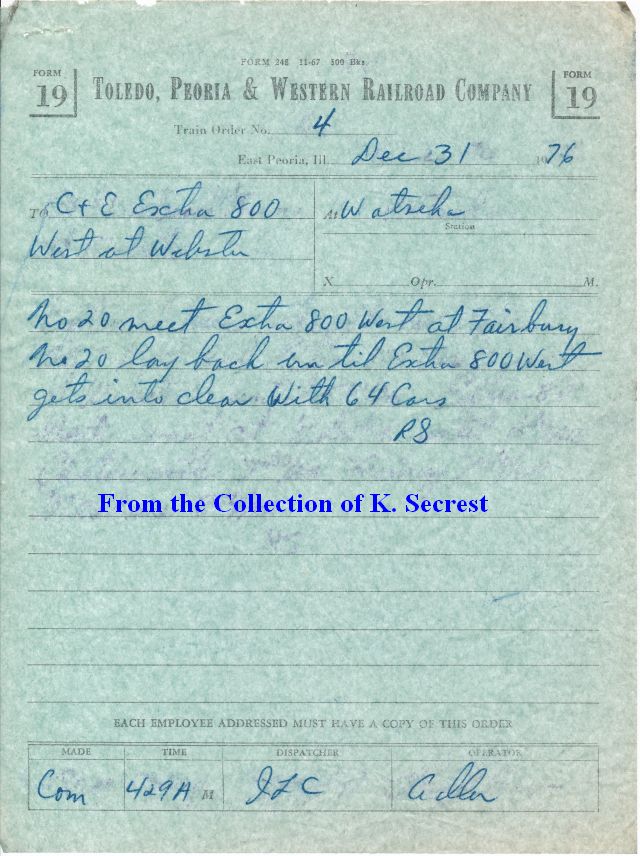 FORM 248 11-67 500 Bks.
FORM 19
TOLEDO, PEORIA & WESTERN RAILROAD COMPANY
FORM 19
Train Order No. 4
East Peoria, Ill. Dec 31 1976
To C+E Extra 800
At Watseka
Station
West at Webster
X Opr. M.
No 20 meet Extra 800 West at Fairbury
No 20 lay back un til Extra 800 West
gets into clear With 64 Cars
From the Collection of K. Secrest
EACH EMPLOYEE ADDRESSED MUST HAVE A COPY OF THIS ORDER
MADE TIME DISPATCHER OPERATOR
Com 429A M JLC